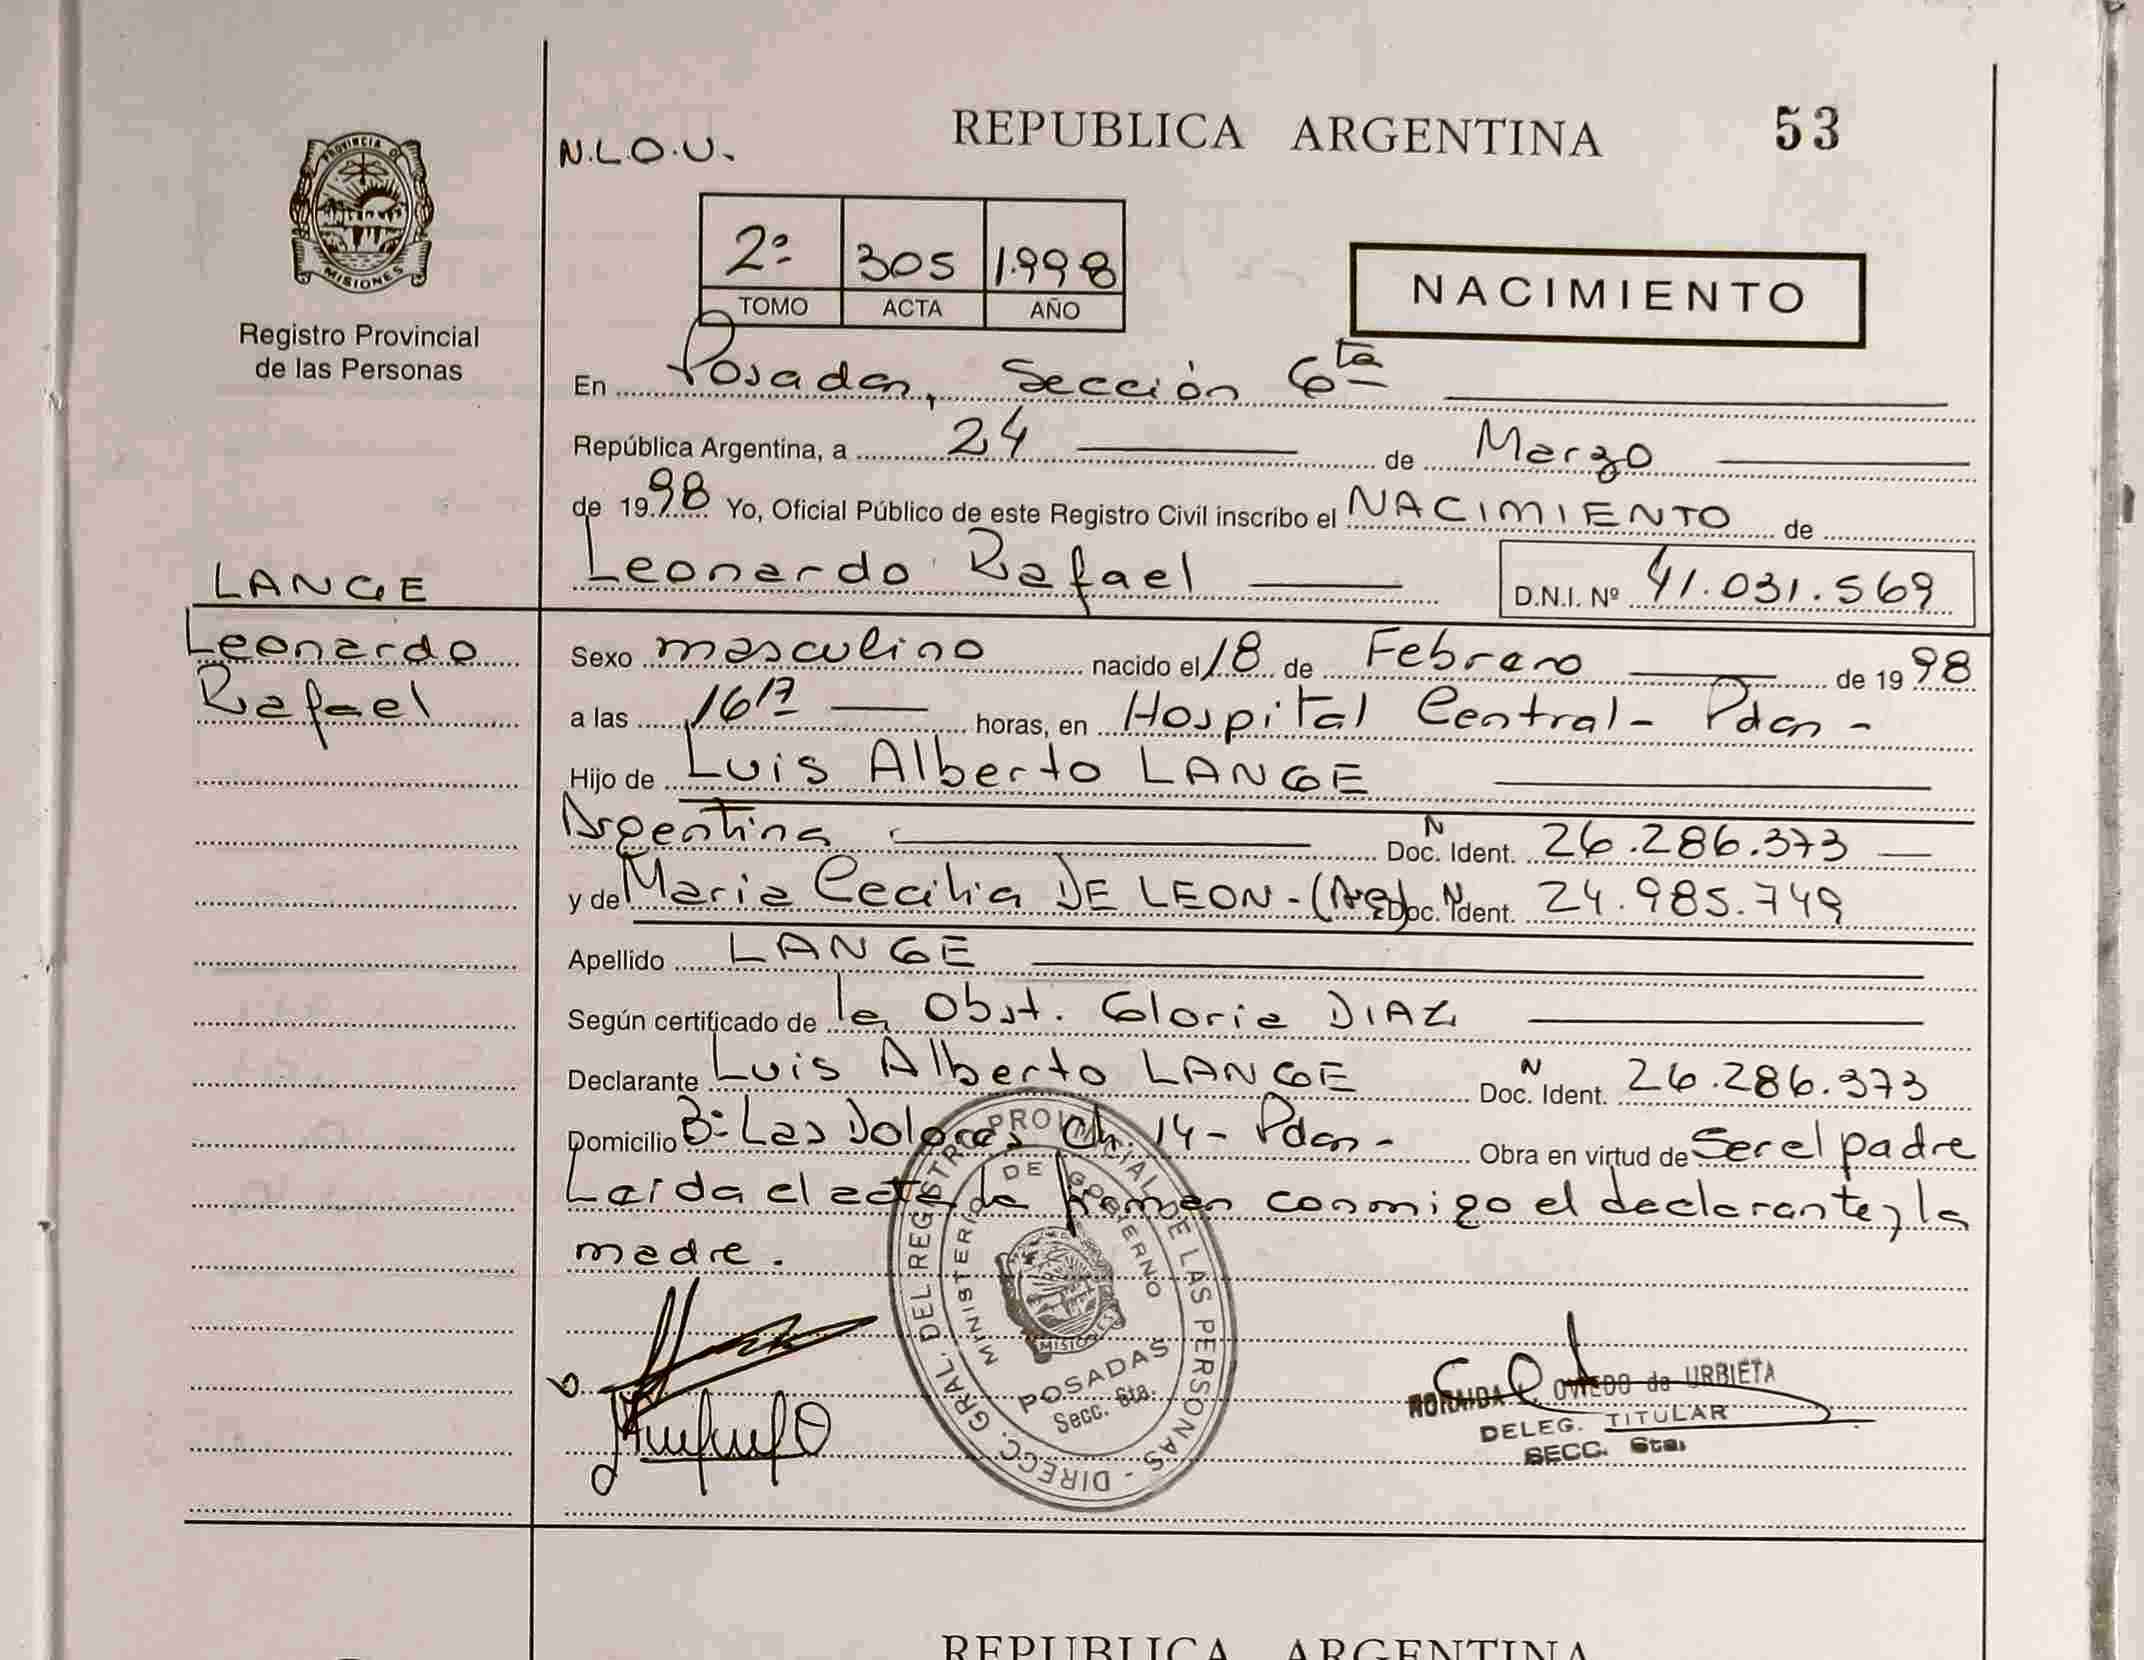 REPUBLICA ARGENTINA
53
N.L.O.U.
PROVINCIA DE
MISIONES
Registro Provincial
de las Personas
2º 305 1.998
TOMO ACTA AÑO
NACIMIENTO
En Posadas, Sección 6ta
República Argentina, a 24 de Marzo
de 1998 Yo, Oficial Público de este Registro Civil inscribo el NACIMIENTO de
Leonardo Rafael D.N.I. Nº 41.031.569
LANGE
Leonardo
Rafael
Sexo masculino nacido el 18 de Febrero de 1998
a las 16 17 horas, en Hospital Central- Pdas -
Hijo de Luis Alberto LANGE
Argentina Doc. Ident. N 26.286.373
y de Maria Cecilia DE LEON - (Arg) Doc. Ident. N 24.985.749
Apellido LANGE
Según certificado de la Obst. Gloria DIAZ
Declarante Luis Alberto LANGE Doc. Ident. N 26.286.373
Domicilio Bº Las Dolores Ch. 14 - Pdas - Obra en virtud de Ser el padre
Leída el acta la firman conmigo el declarante y la
madre.
DIRECC. GRAL. DEL REGISTRO PROVINCIAL DE LAS PERSONAS -
MINISTERIO DE GOBIERNO
MISIONES
POSADAS
Secc. 6ta.
OVIEDO de URBIETA
DELEG. TITULAR
SECC. 6ta.
REPUBLICA ARGENTINA